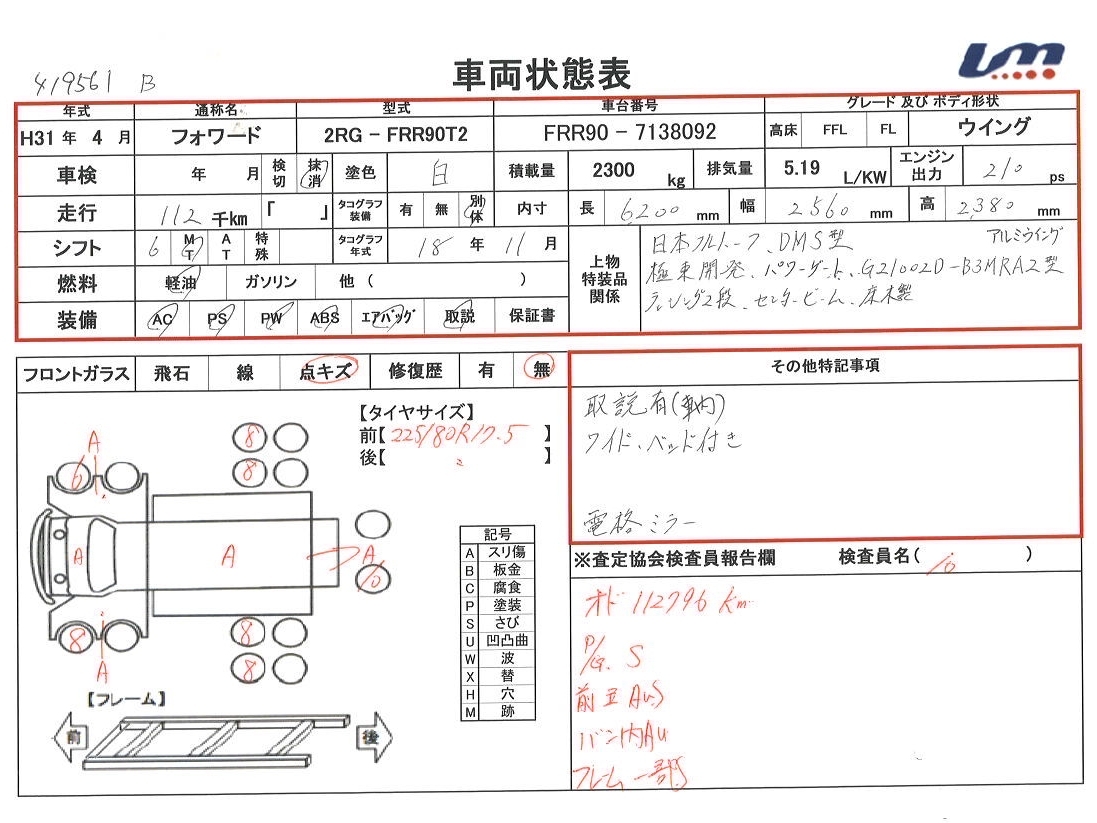 419561 B
車両状態表
UM
年式 通称名 型式 車台番号 グレード 及び ボディ形状
H31 年 4 月 フォワード 2RG - FRR90T2 FRR90 - 7138092 高床 FFL FL ウイング
車検 年 月 検切 抹消 塗色 白 積載量 2300 kg 排気量 5.19 L/KW エンジン出力 210 ps
走行 112 千km 「 」 タコグラフ装備 有 無 別体 内寸 長 6200 mm 幅 2560 mm 高 2,380 mm
シフト 6 MT AT 特殊 タコグラフ年式 18 年 11 月
燃料 軽油 ガソリン 他 ( )
装備 AC PS PW ABS エアバッグ 取説 保証書
上物特装品関係
日本フルハーフ、DMS型 アルミウイング
極東開発、パワーゲート、G21002D-B3MRA2型
ラッシング2段、センタービーム、床木製
フロントガラス 飛石 線 点キズ 修復歴 有 無
その他特記事項
取説有(車内)
ワイド、ベッド付き
電格ミラー
【タイヤサイズ】
前【 225/80R17.5 】
後【 〃 】
A
6
8
8
A
A
A
10
8
8
8
A
記号
A スリ傷
B 板金
C 腐食
P 塗装
S さび
U 凹凸曲
W 波
X 替
H 穴
M 跡
【フレーム】
前 後
※査定協会検査員報告欄 検査員名( )
オド 112796 km
P/G. S
前立 AUS
バン内AU
フレーム一部S